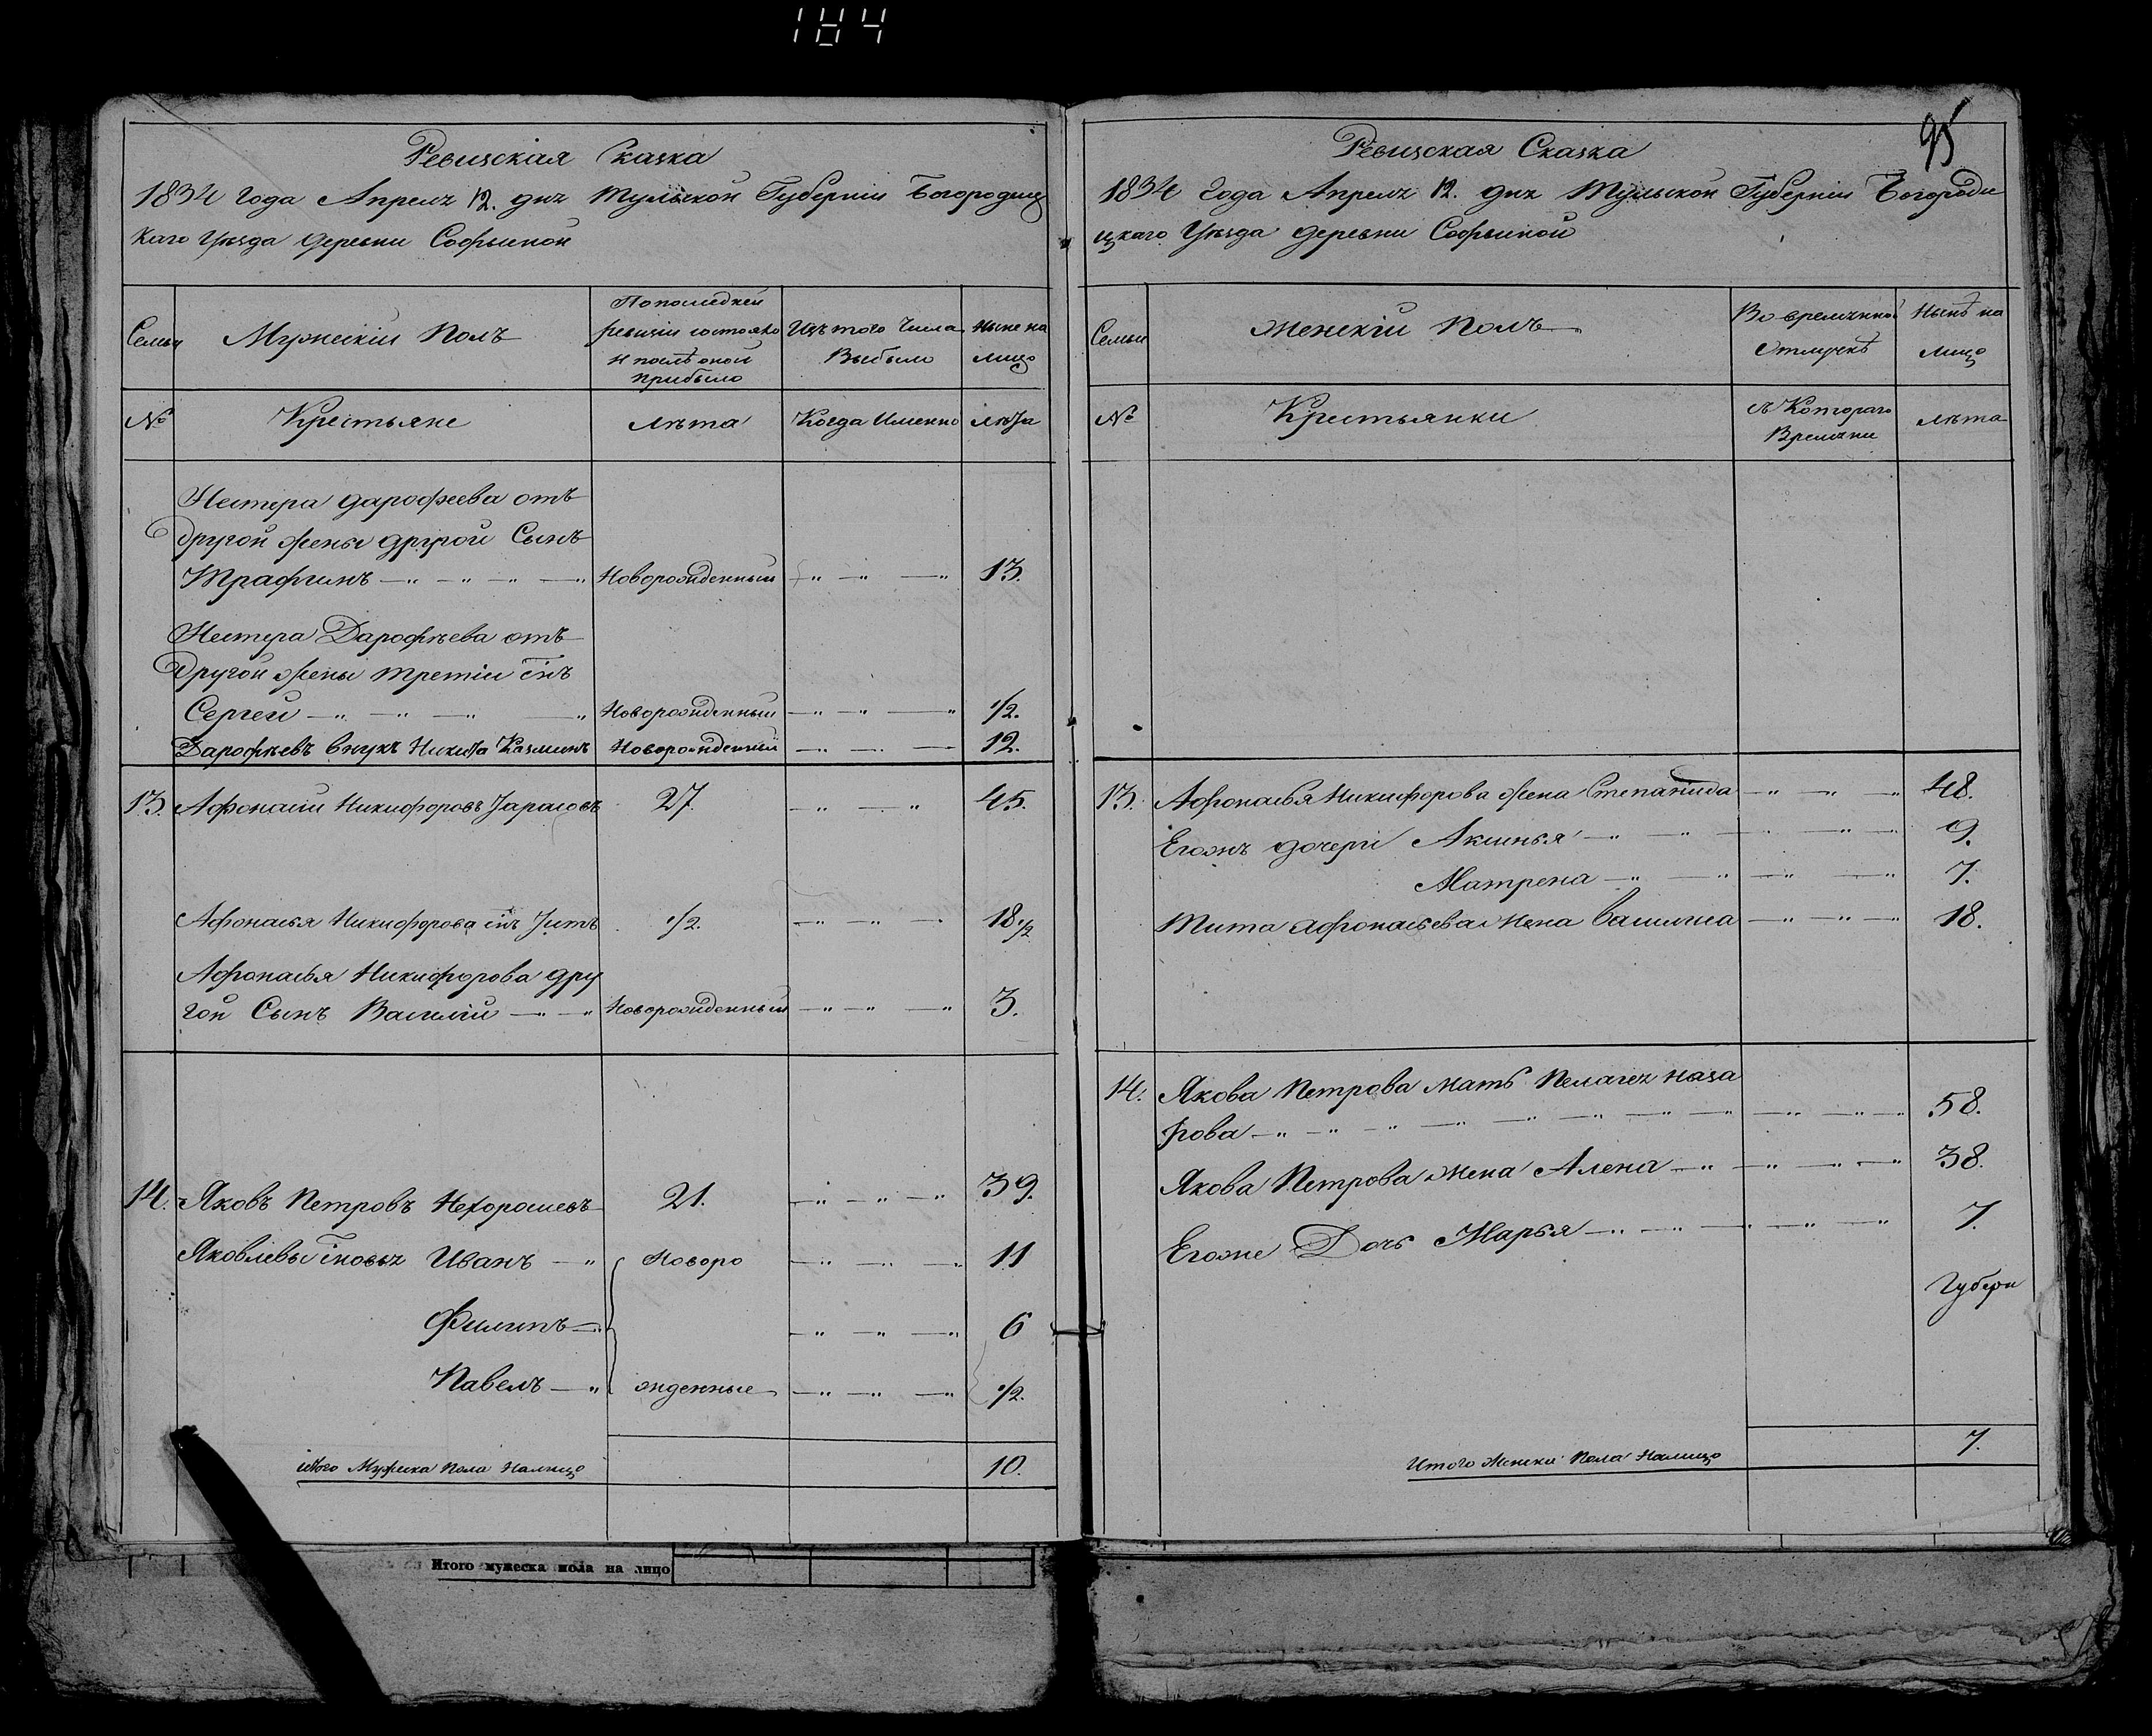 184
Ревизская Сказка
1834 Года Апреля 12. дня Тульской Губернии Богородиц
каго Уѣзда деревни Софьиной
Семьи
Мужескiй Полъ
По последней
ревизiи состояло
и послѣ оной
прибыло
Изъ того Числа
Выбыло
Ныне на
лицо
№
Крестьяне
лѣта
Когда Именно
лѣта
Нестера дарофеева отъ
другой жены другой Сынъ
Трафимъ Новорожденный 13.
Нестера Дарофѣева отъ
другой жены третiй снъ
Сергей Новорожденный 1/2.
Дарофѣевъ внукъ Никита Казминъ Новорожденный 12.
13. Афонасий Никифоровъ Тарасовъ 27. 45.
Афонасья Никифорова снъ Титъ 1/2. 18 1/2
Афонасья Никифорова дру
гой Сынъ Василiй Новорожденный 3.
14. Яковъ Петровъ Нехорошевъ 21. 39.
Яковлевы сновья Иванъ Новоро 11
Филипъ 6
Павелъ жденные 1/2.
итого Мужеска Пола Налицо 10.
Итого мужеска пола на лицо
95
Ревизская Сказка
1834 Года Апреля 12. дня Тульской Губернiи Богороди
цкаго Уѣзда деревни Софьиной
Семьи
Женскiй Полъ
Во временной
Отлучкѣ
Нынѣ на
лицо
№
Крестьянки
съ Котораго
Времени
лѣта
13. Афонасья Никифорова жена Степанида 48.
Егожъ дочери Аксинья 9.
Матрена 7.
Тита Афонасьева жена Василиса 18.
14. Якова Петрова мать Пелагея Наза
рова 58.
Якова Петрова жена Алена 38.
Егоже Дочь Марья 7.
Губерн
Итого Женска Пола Налицо 7.